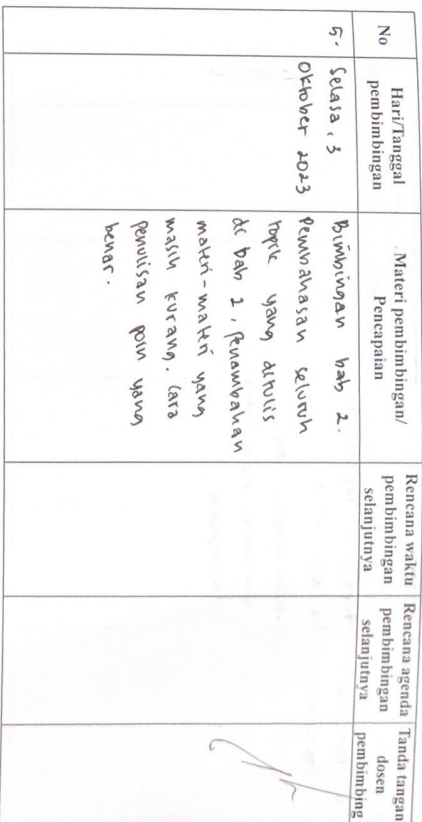 No
Hari/Tanggal
pembimbingan
Materi pembimbingan/
Pencapaian
Rencana waktu
pembimbingan
selanjutnya
Rencana agenda
pembimbingan
selanjutnya
Tanda tangan
dosen
pembimbing
5.
Selasa, 3
Oktober 2023
Bimbingan bab 2.
Pembahasan seluruh
topik yang ditulis
di bab 2, Penambahan
materi-materi yang
masih kurang. Cara
penulisan poin yang
benar.